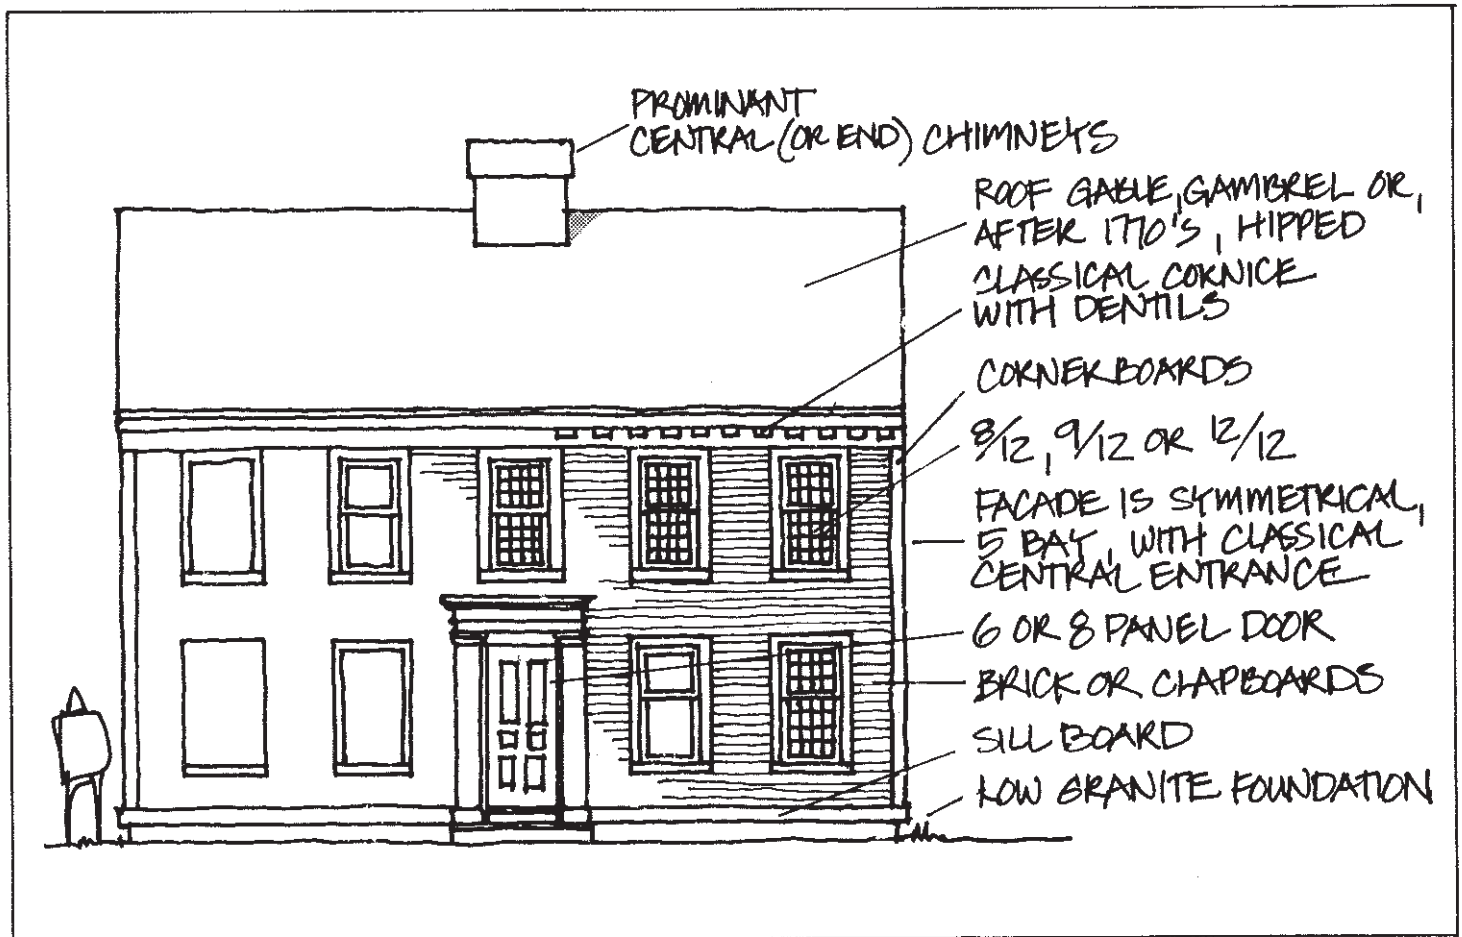 PROMINANT
CENTRAL (OR END) CHIMNEYS
ROOF GABLE, GAMBREL OR,
AFTER 1770'S, HIPPED
CLASSICAL CORNICE
WITH DENTILS
CORNERBOARDS
8/12, 9/12 OR 12/12
FACADE IS SYMMETRICAL,
5 BAY, WITH CLASSICAL
CENTRAL ENTRANCE
6 OR 8 PANEL DOOR
BRICK OR CLAPBOARDS
SILL BOARD
LOW GRANITE FOUNDATION